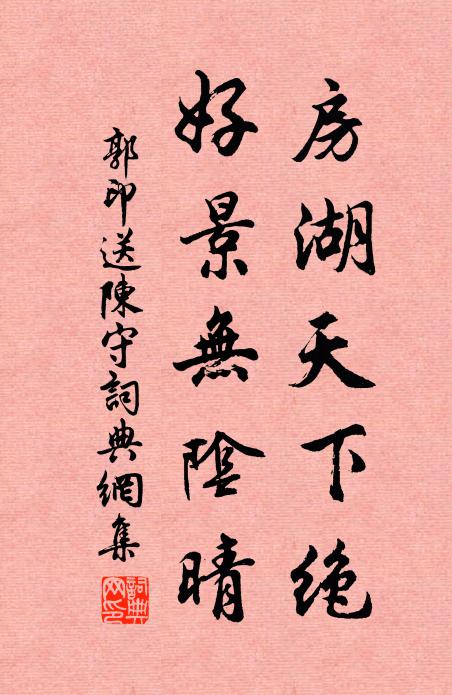 房湖天下绝
好景無陰晴
郭印送陳守詞典網集
詞典网印